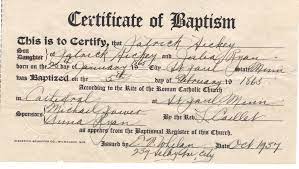 Certificate of Baptism
This is to Certify, that Patrick Hickey
Son
Daughter of Patrick Hickey and Julia Ryan
born on the January 19 St Paul Minn
was Baptized on the 5th of February 19 1865
According to the Rite of the Roman Catholic Church
in Cathedral at St Paul Minn
Sponsors Michael Power By the Rev. Caillet
Ryan
as appears from the Baptismal Register of this Church.
Issued by Whelan Date Oct 1937
239 Selby Av. City